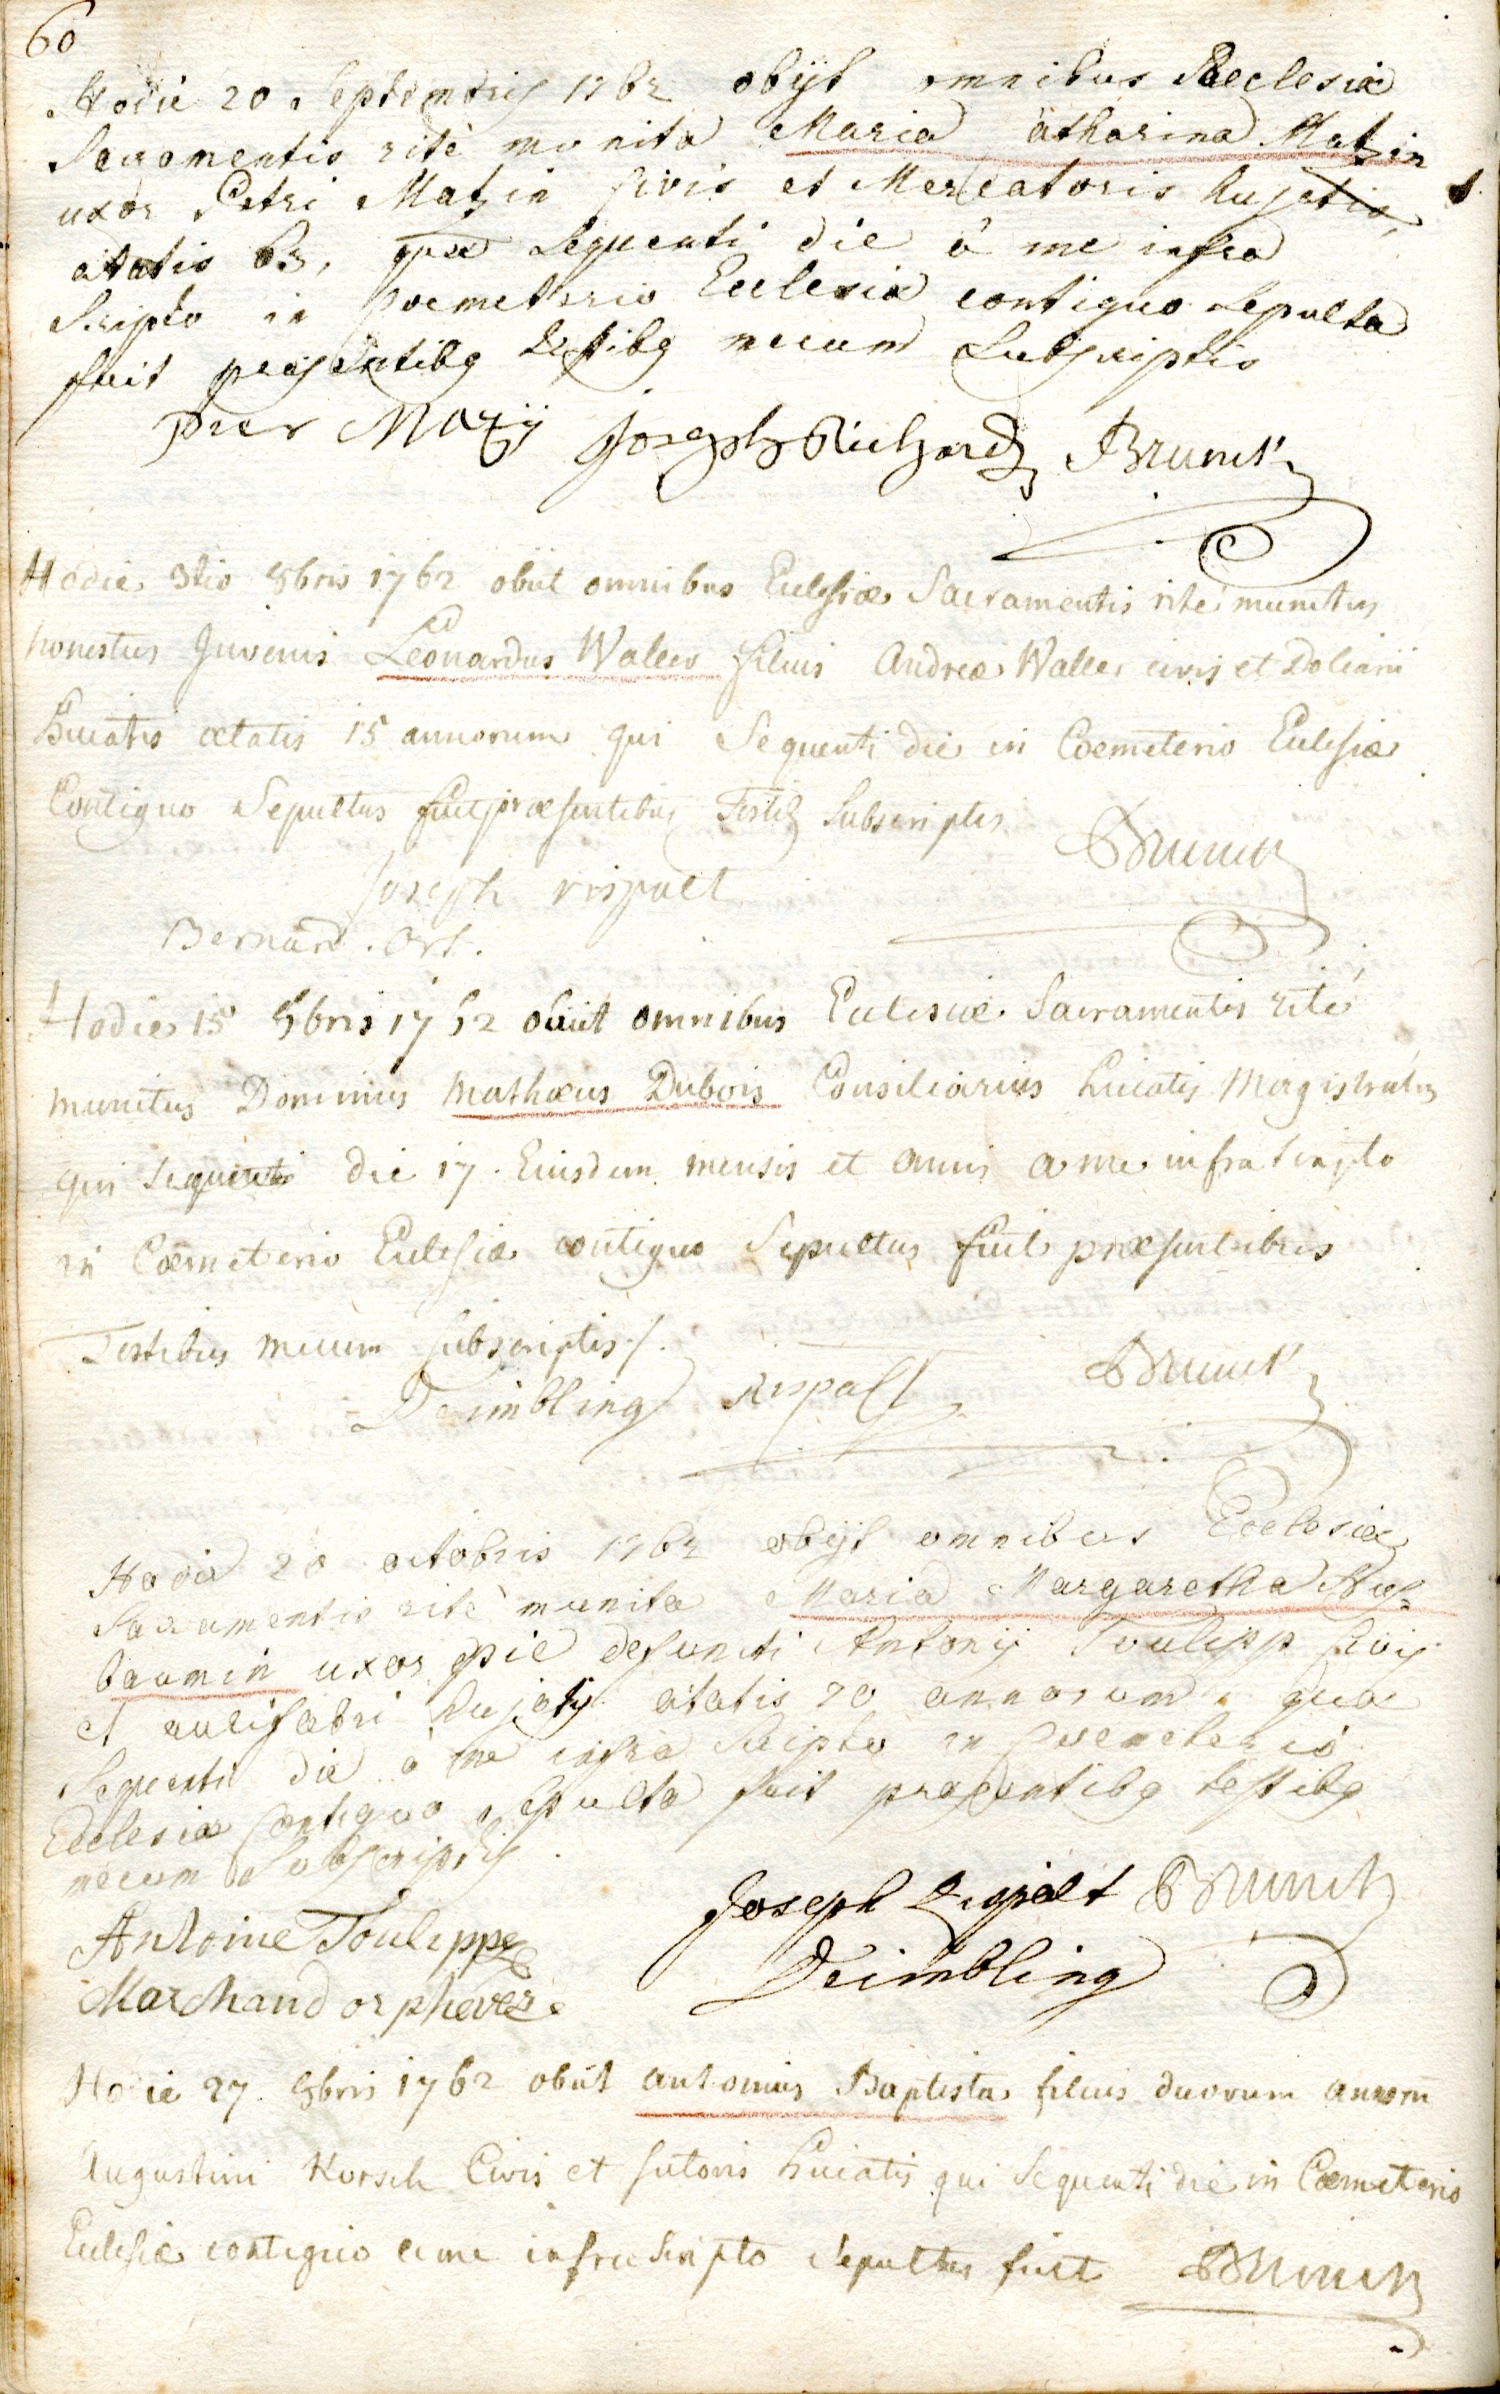 60
Hodie 20 Septembris 1762 obijt omnibus Ecclesiæ
Sacramentis ritè munita Maria Catharina Matzin
uxor Petri Matzin Civis et Mercatoris hujatis,
ætatis 63, quæ sequenti die à me infra
scripto in Coemeterio Ecclesiæ contiguo sepulta
fuit præsentibq testibq mecum subscriptis
Peter Mazij Joseph Richard Brunck
Hodie 3tio 8bris 1762 obiit omnibus Eclesiæ Sacramentis rité munitus
honestus Juvenis Leonardus Waller filius Andreæ Waller civis et Doliarii
huiatis ætatis 15 annorum qui Sequenti die in Coemeterio Eclesiæ
Contiguo Sepultus fuit præsentibus Testib subscriptis
Brunck
Joseph rispalt
Bernard . Ort .
Hodie 15 8bris 1762 obiit omnibus Eclesiæ Sacramentis rité
munitus Dominus Mathæus Dubois Consiliarius huiatis Magistratus
qui sequenti die 17 . Eiusdem mensis et anni a me infrascripto
in Coemeterio Eclesiæ contiguo Sepultus fuit præsentibus
Testibus mecum subscriptis /.
Deimbling rispalt Brunck
Hodie 20 octobris 1762 obijt omnibus Ecclesiæ
Sacramentis ritè munita Maria Margaretha Nus=
baumin uxor piè defuncti Antonij Toulipp Civis
et aurifabri hujatis ætatis 70 annorum, quæ
Sequenti die à me infra scripto in Coemeterio
Ecclesiæ Contiguo sepulta fuit præsentibq testibq
mecum subscriptis .
Joseph Rispalt Brunck
Antoine Toulippe
Deimbling
Marchand orphevre .
Hodie 27 . 8bris 1762 obiit antonius Baptista filius duorum annorum
Augustini Korsch Civis et sutoris huiatis qui Sequenti die in Coemeterio
Eclesiæ contiguo a me infra scripto Sepultus fuit Brunck